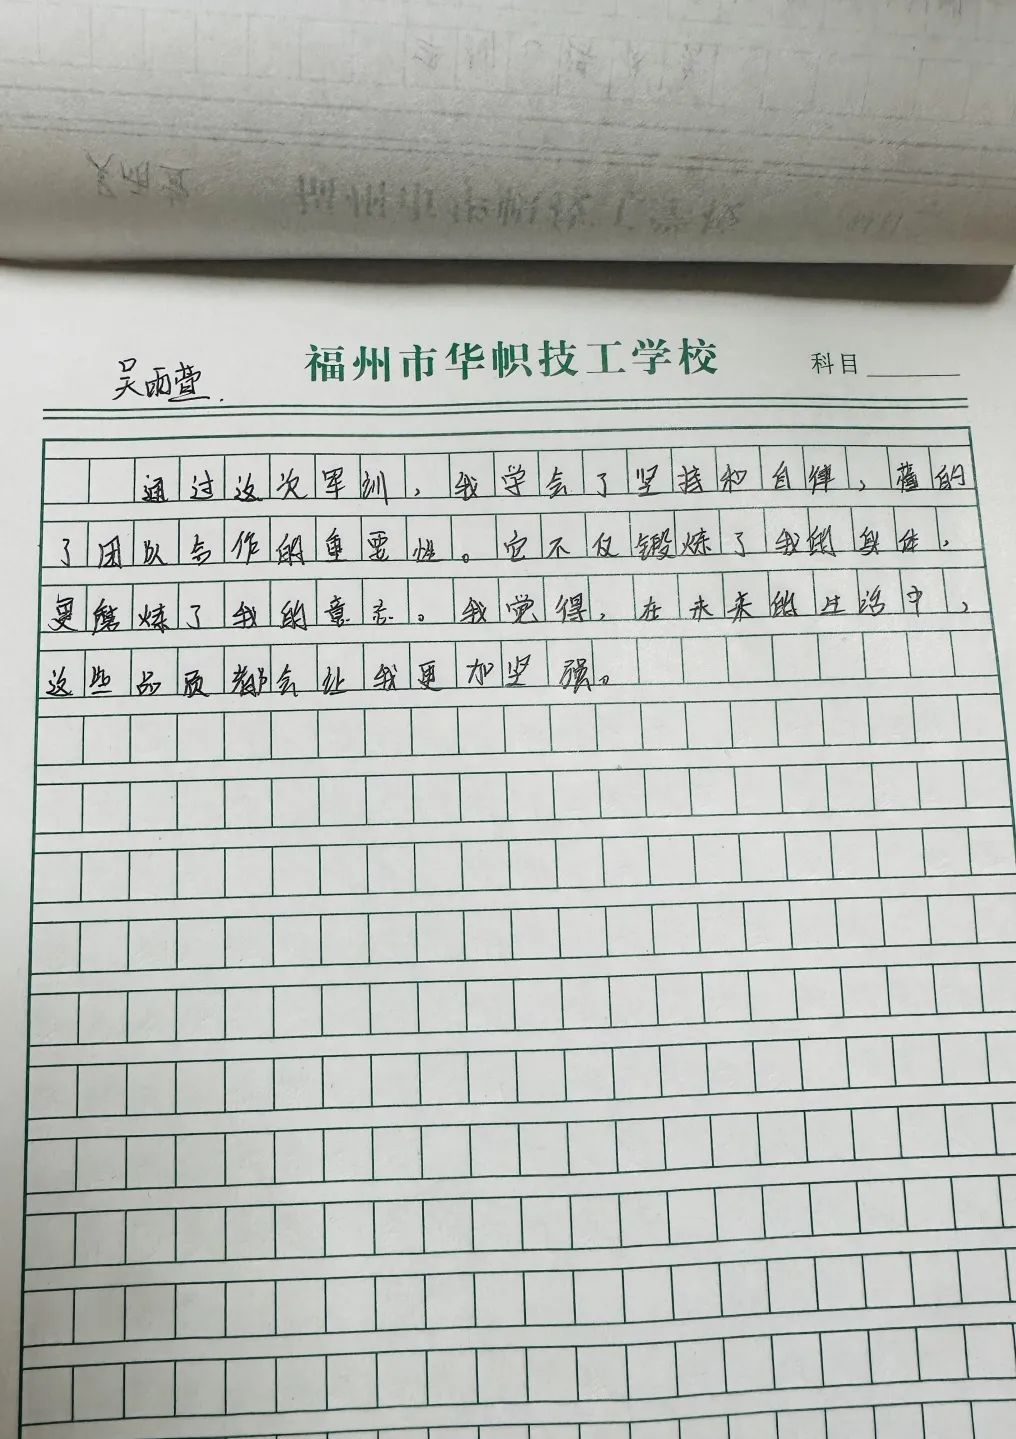 福州市华帜技工学校
科目
吴雨萱
通过这次军训，我学会了坚持和自律，懂的
了团队合作的重要性。它不仅锻炼了我的身体，
更磨炼了我的意志。我觉得，在未来的生活中，
这些品质都会让我更加坚强。